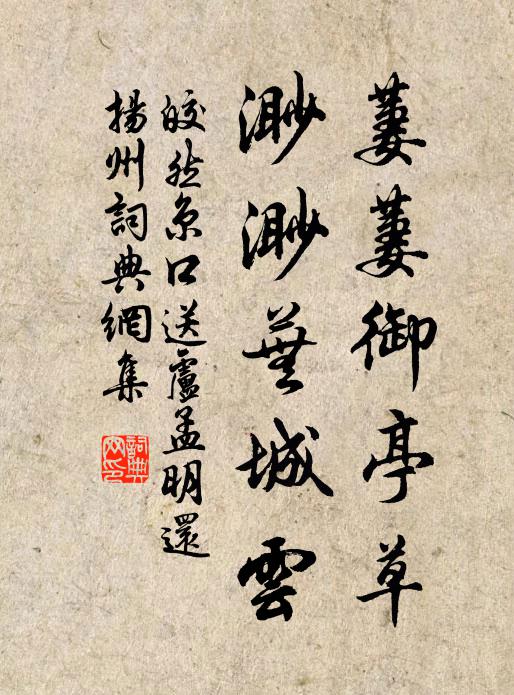 萋萋御亭草
渺渺蕪城雲
皎然京口送盧孟明還
揚州詞典網集
詞典網印